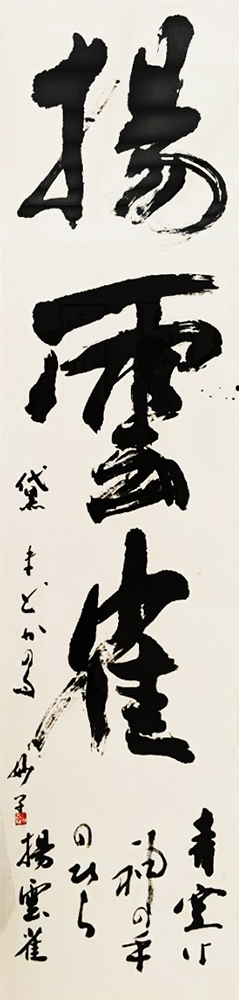 揚雲雀
青空は
神の手
のひら
揚雲雀
黛 まどかの句
妙子